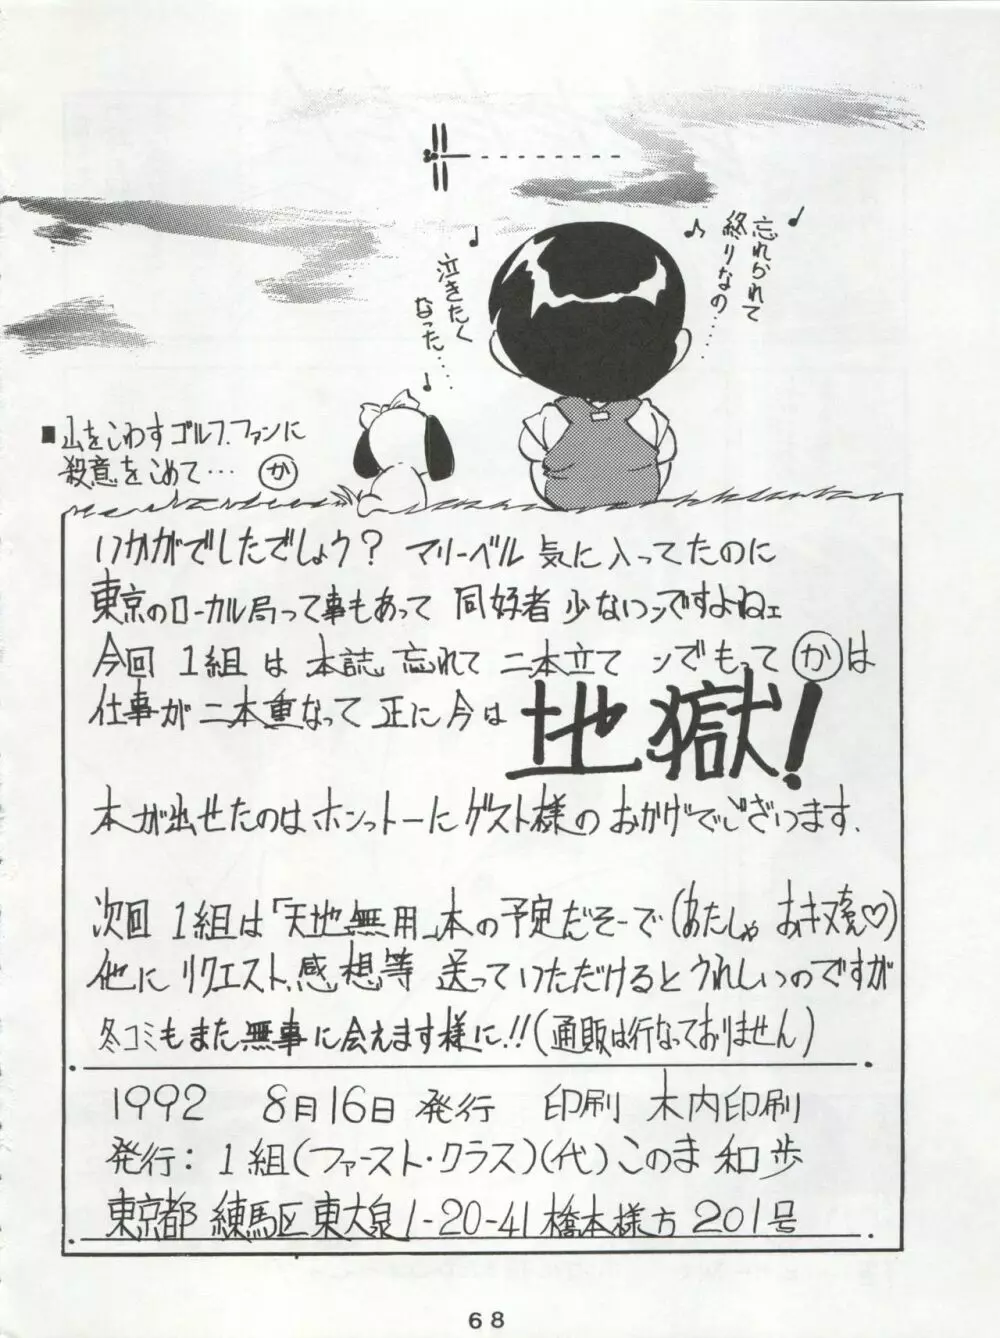 忘れられて
終りなの……
泣きたく
なった……
■山をこわすゴルフファンに
殺意をこめて… か
いかがでしたでしょう? マリーベル 気に入ってたのに
東京のローカル局って事もあって 同好者 少ないンですよねェ
今回 1組 は 本誌 忘れて 二本立て ンでもって か は
仕事が 二本重なって 正に 今は 地獄!
本が出せたのは ホンっトーに ゲスト様の おかげでございます.
次回 1組は「天地無用」本の予定だそーで (あたしゃ おキヌ♡)
他に リクエスト、感想等 送っていただけるとうれしいのですが
冬コミもまた無事に会えます様に!!(通販は行なっておりません)
1992 8月16日 発行 印刷 木内印刷
発行: 1組(ファースト・クラス)(代)このま 和歩
東京都 練馬区東大泉1-20-41 橋本様方 201号
68